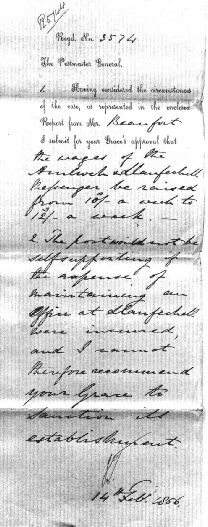 R3574
Regd. No. 3574
The Postmaster General.
1. Having considered the circumstances
of the case, as represented in the enclosed
Report from Mr. Beaufort
I submit for your Grace's approval that
the wages of the
Amlwch & Llanfechell
Messenger be raised
from 10/- a week to
12/- a week. —
2. The post would not be
selfsupporting if
the expense of
maintaining an
Office at Llanfechell
were incurred,
and I cannot
therefore recommend
your Grace to
sanction its
establishment.
14th Feb. 1856